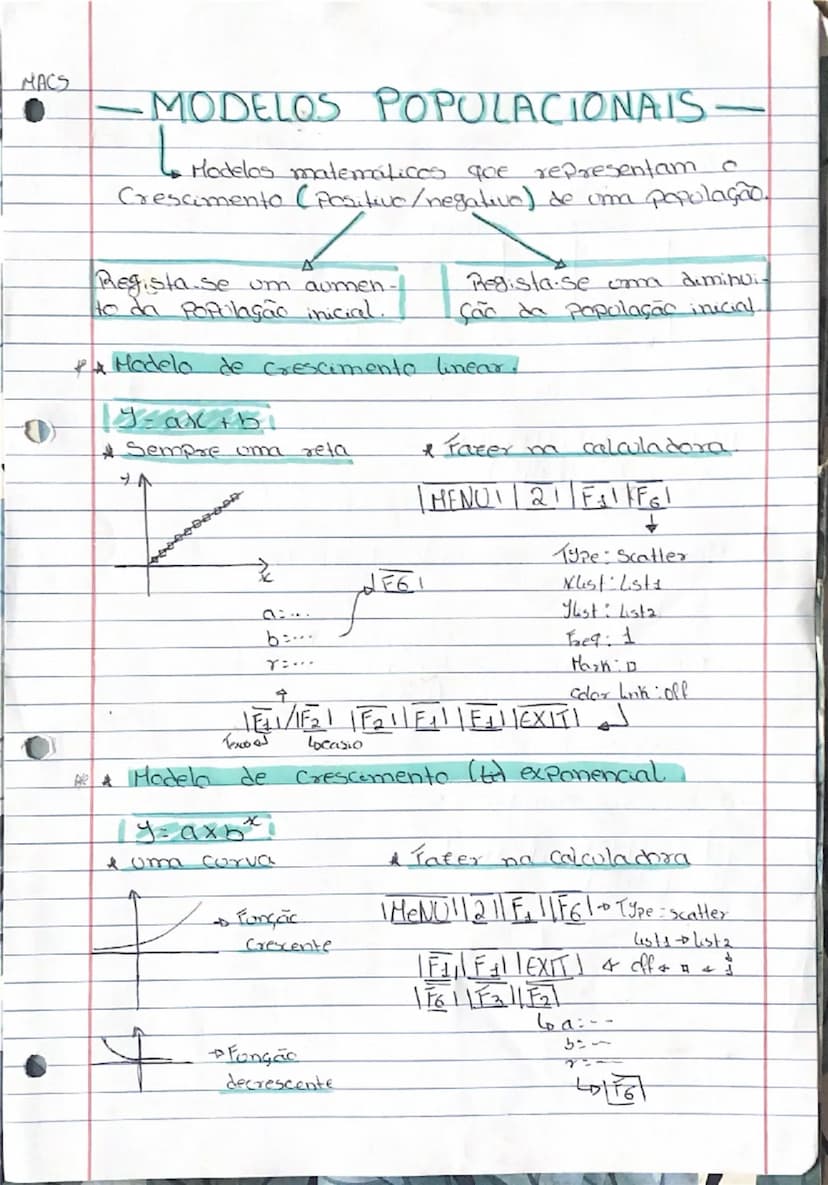 MACS
— MODELOS POPULACIONAIS —
Modelos matemáticos que representam o
Crescimento (Positivo/negativo) de uma população.
Regista-se um aumen-
to da população inicial.
Regista-se uma diminui-
ção da população inicial.
* Modelo de Crescimento linear.
y = ax + b
* Sempre uma reta
* Fazer na calculadora
|MENU| |2| |F1| |F6|
y
x
Type: Scatter
XList: List1
YList: List2
Freq: 1
Mark: □
Color Link: Off
|F6|
a=...
b=...
r=...
|F1|/|F2| |F2| |F1| |F1| |EXIT|
* Modelo de Crescimento exponencial
y = a x b^x
* uma curva
* Fazer na Calculadora
→ Função
Crescente
|MeNU| |2| |F1| |F6| → Type = scatter
List1 → List2
|F1| |F1| |EXIT| ← off ← □ ← 1
|F6| |F3| |F2|
↳ a=--
b=--
r=--
↳ |F6|
→ Função
decrescente